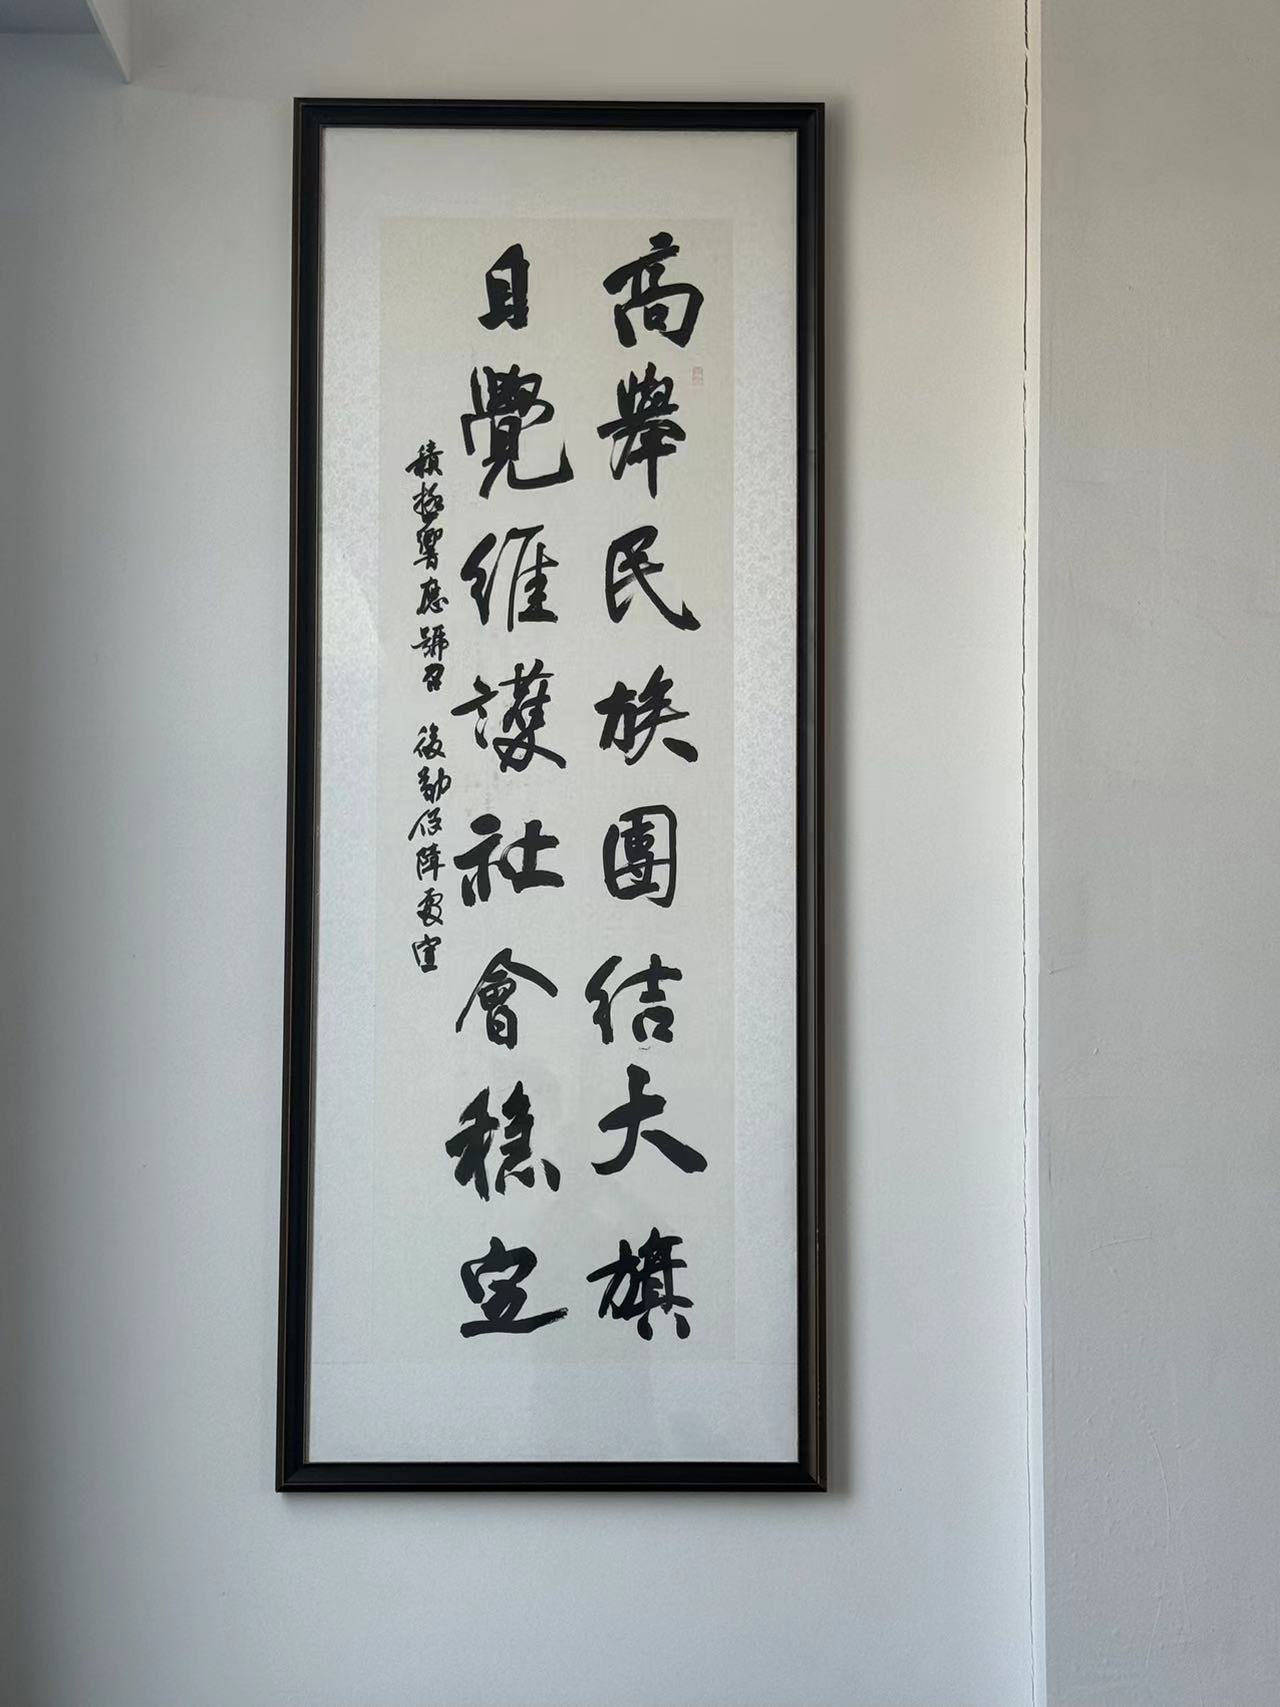 高舉民族團结大旗
自覺維護社會穩定
積極響應號召 後勤保障處宣